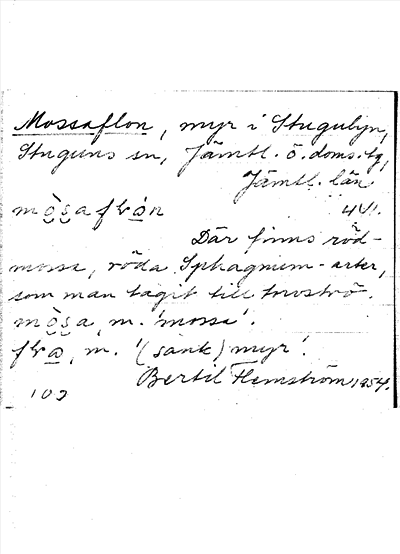 Mossaflon, myr i Stugubyn,
Stuguns sn, Jämtl. ö. doms. tg,
Jämtl. län
mo̬s̬aflo̱n 4VI.
Där finns röd-
mossa, röda Sphagnum-arter,
som man tagit till husströ.
mo̬s̬a, m. 'mossa'.
flo̱, m. '(sank) myr'.
Bertil Flemström 1954.
102